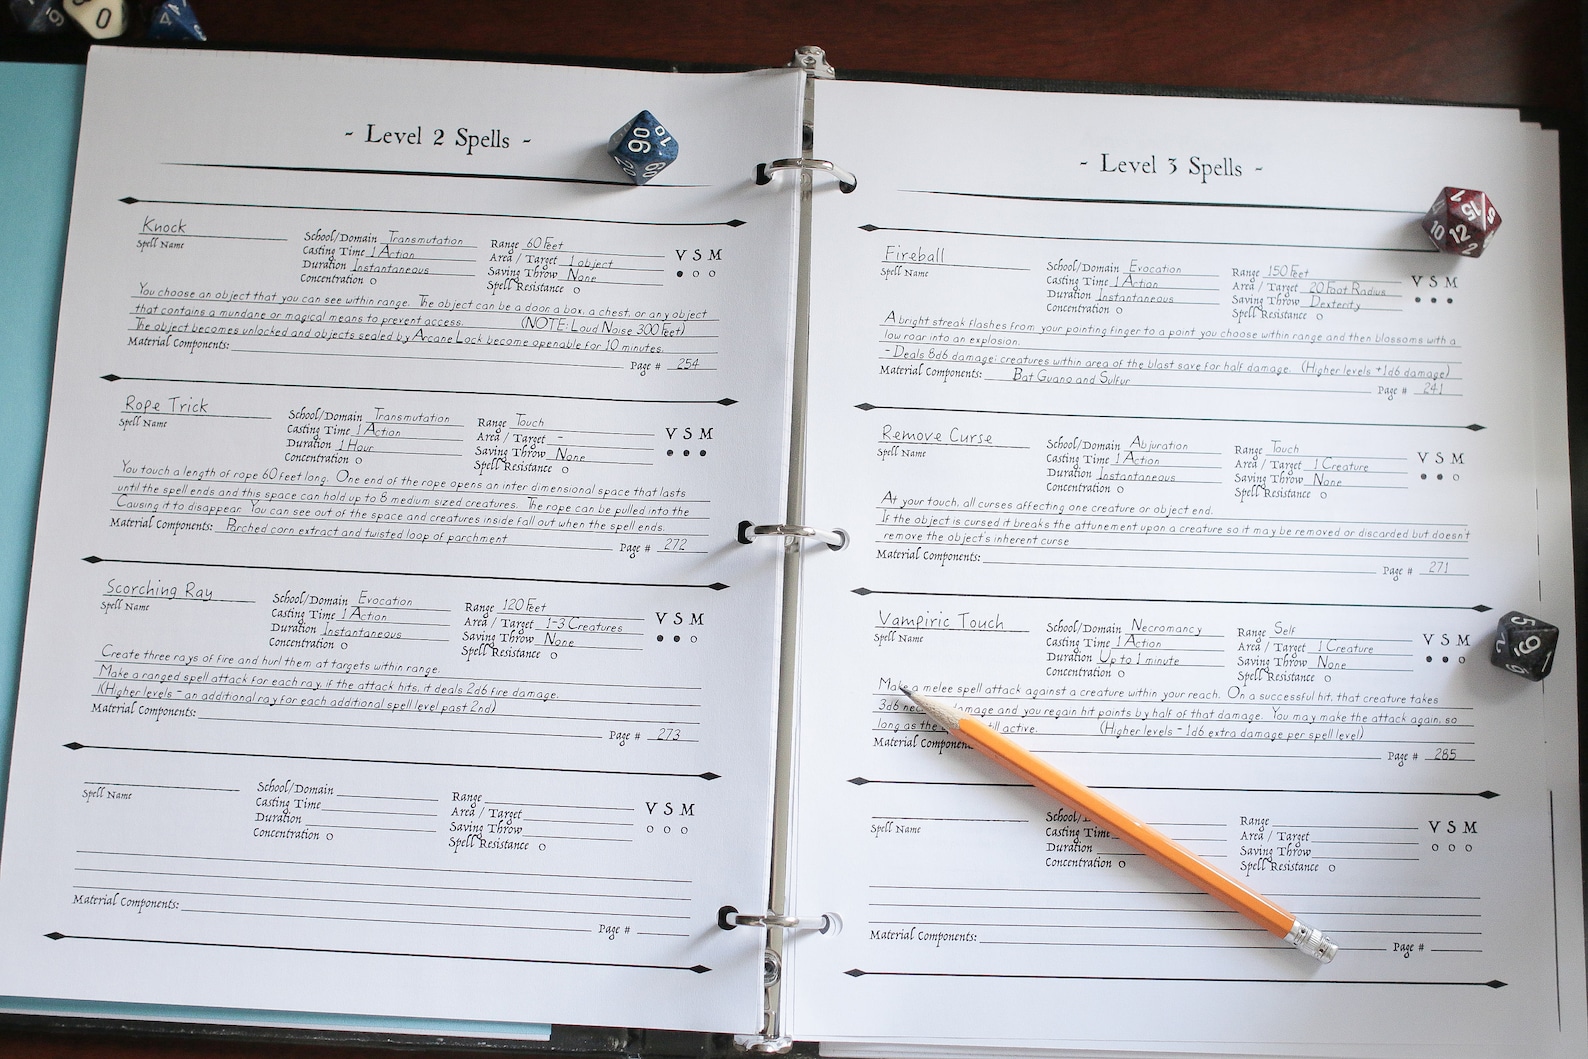 - Level 2 Spells -
Knock
Spell Name
School/Domain Transmutation
Casting Time 1 Action
Duration Instantaneous
Concentration
Range 60 Feet
Area / Target 1 object
Saving Throw None
Spell Resistance
V S M
You choose an object that you can see within range. The object can be a door a box, a chest, or any object
that contains a mundane or magical means to prevent access. (NOTE: Loud Noise 300 Feet)
The object becomes unlocked and objects sealed by Arcane Lock become openable for 10 minutes.
Material Components:
Page # 254
Rope Trick
Spell Name
School/Domain Transmutation
Casting Time 1 Action
Duration 1 Hour
Concentration
Range Touch
Area / Target -
Saving Throw None
Spell Resistance
V S M
You touch a length of rope 60 feet long. One end of the rope opens an inter dimensional space that lasts
until the spell ends and this space can hold up to 8 medium sized creatures. The rope can be pulled into the
Causing it to disappear. You can see out of the space and creatures inside fall out when the spell ends.
Material Components: Parched corn extract and twisted loop of parchment
Page # 272
Scorching Ray
Spell Name
School/Domain Evocation
Casting Time 1 Action
Duration Instantaneous
Concentration
Range 120 Feet
Area / Target 1-3 Creatures
Saving Throw None
Spell Resistance
V S M
Create three rays of fire and hurl them at targets within range.
Make a ranged spell attack for each ray, if the attack hits, it deals 2d6 fire damage.
(Higher levels - an additional ray for each additional spell level past 2nd)
Material Components:
Page # 273
Spell Name
School/Domain
Casting Time
Duration
Concentration
Range
Area / Target
Saving Throw
Spell Resistance
V S M
Material Components:
Page #
- Level 3 Spells -
Fireball
Spell Name
School/Domain Evocation
Casting Time 1 Action
Duration Instantaneous
Concentration
Range 150 Feet
Area / Target 20 Foot Radius
Saving Throw Dexterity
Spell Resistance
V S M
A bright streak flashes from your pointing finger to a point you choose within range and then blossoms with a
low roar into an explosion.
- Deals 8d6 damage: creatures within area of the blast save for half damage. (Higher levels +1d6 damage)
Material Components: Bat Guano and Sulfur
Page # 241
Remove Curse
Spell Name
School/Domain Abjuration
Casting Time 1 Action
Duration Instantaneous
Concentration
Range Touch
Area / Target 1 Creature
Saving Throw None
Spell Resistance
V S M
At your touch, all curses affecting one creature or object end.
If the object is cursed it breaks the attunement upon a creature so it may be removed or discarded but doesn't
remove the object's inherent curse
Material Components:
Page # 271
Vampiric Touch
Spell Name
School/Domain Necromancy
Casting Time 1 Action
Duration Up to 1 minute
Concentration
Range Self
Area / Target 1 Creature
Saving Throw None
Spell Resistance
V S M
Make a melee spell attack against a creature within your reach. On a successful hit, that creature takes
3d6 damage and you regain hit points by half of that damage. You may make the attack again, so
long as the active. (Higher levels - 1d6 extra damage per spell level)
Material
Page # 285
Spell Name
Casting Time
Duration
Concentration
Range
Area / Target
Saving Throw
Spell Resistance
V S M
Material Components:
Page #
0
90
10
15
10
12
2
5
9
1